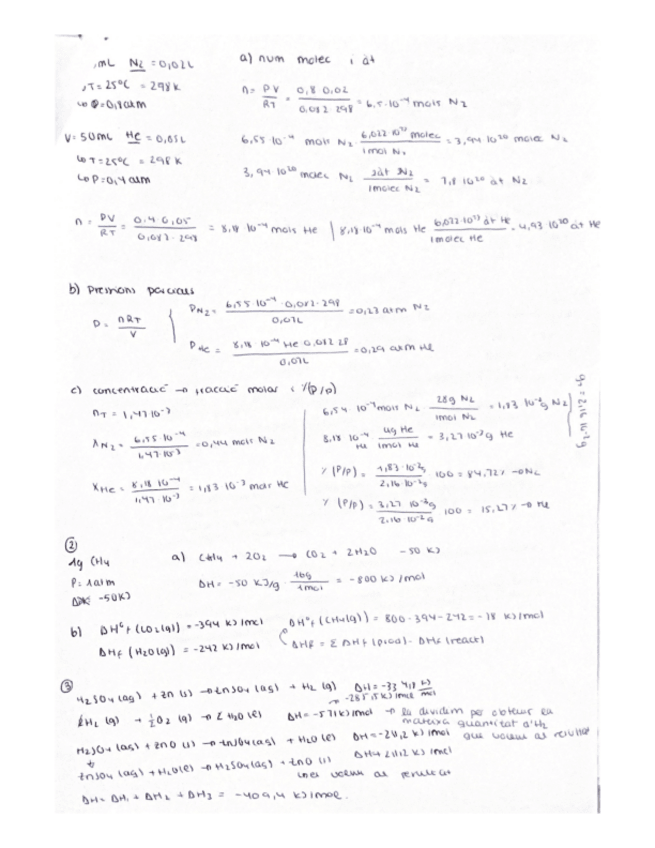 mL N₂ = 0,02L
T = 25ºC = 298 K
↳ P = 0,8 atm
V = 50 mL He = 0,05L
↳ T = 25ºC = 298 K
↳ P = 0,4 atm
a) num molec i àt
n = PV/RT = 0,8 0,02/0,082 298 = 6,5·10⁻⁴ mols N₂
6,55·10⁻⁴ mols N₂ · 6,022 10²³ molec/1mol N₂ = 3,94 10²⁰ molec N₂
3,94 10²⁰ molec N₂ 2àt N₂/1molec N₂ = 7,8 10²⁰ àt N₂
n = PV/RT = 0,4 0,05/0,082·298 = 8,18 10⁻⁴ mols He | 8,18·10⁻⁴ mols He 6,022 10²³ àt He/1molec He = 4,93 10²⁰ àt He
b) Pressions parcials
P = nRT/V
P N₂ = 6,55 10⁻⁴ · 0,082 · 298/0,07L = 0,23 atm N₂
P He = 8,18 · 10⁻⁴ He 0,082 28/0,07L = 0,29 atm He
c) concentració → fracció molar i %(P/P)
nT = 1,47 10⁻³
X N₂ = 6,55 10⁻⁴/1,47 10⁻³ = 0,44 mols N₂
X He = 8,18 10⁻⁴/1,47 10⁻³ = 1,83 10⁻³ mols He
6,54 · 10⁻⁴ mols N₂ 28g N₂/1mol N₂ = 1,83 10⁻²g N₂
8,18 10⁻⁴ He 4g He/1mol He = 3,27 10⁻³g He
gT = 2,16 10⁻²g
% (P/P) = 1,83·10⁻²g/2,16 10⁻²g 100 = 84,72% → N₂
% (P/P) = 3,27 10⁻³g/2,16 10⁻²g 100 = 15,27% → He
②
1g CH₄
P = 1 atm
-50KJ
a) CH₄ + 2O₂ → CO₂ + 2H₂O -50 KJ
ΔH = -50 KJ/g · 16g/1mol = -800 KJ/mol
b) ΔHºf (CO₂(g)) = -394 KJ/mol
ΔHf (H₂O(g)) = -242 KJ/mol
ΔHºf (CH₄(g)) = 800-394-242 = -18 KJ/mol
ΔHR = Σ ΔHf (prod) - ΔHf (react)
③
H₂SO₄ (aq) + Zn (s) → ZnSO₄ (aq) + H₂ (g) ΔH = -334,8 KJ/mol
→ -285,5 KJ/mol
2H₂ (g) + ½O₂ (g) → 2 H₂O (l) ΔH = -571 KJ/mol → la dividim per obtenir la
mateixa quantitat d'H₂
que volem al resultat
H₂SO₄ (aq) + ZnO (s) → ZnSO₄ (aq) + H₂O (l) ΔH = -211,2 KJ/mol
ZnSO₄ (aq) + H₂O (l) → H₂SO₄ (aq) + ZnO (s) ΔH = 211,2 KJ/mol
volem al resultat
ΔH = ΔH₁ + ΔH₂ + ΔH₃ = -409,4 KJ/mol.